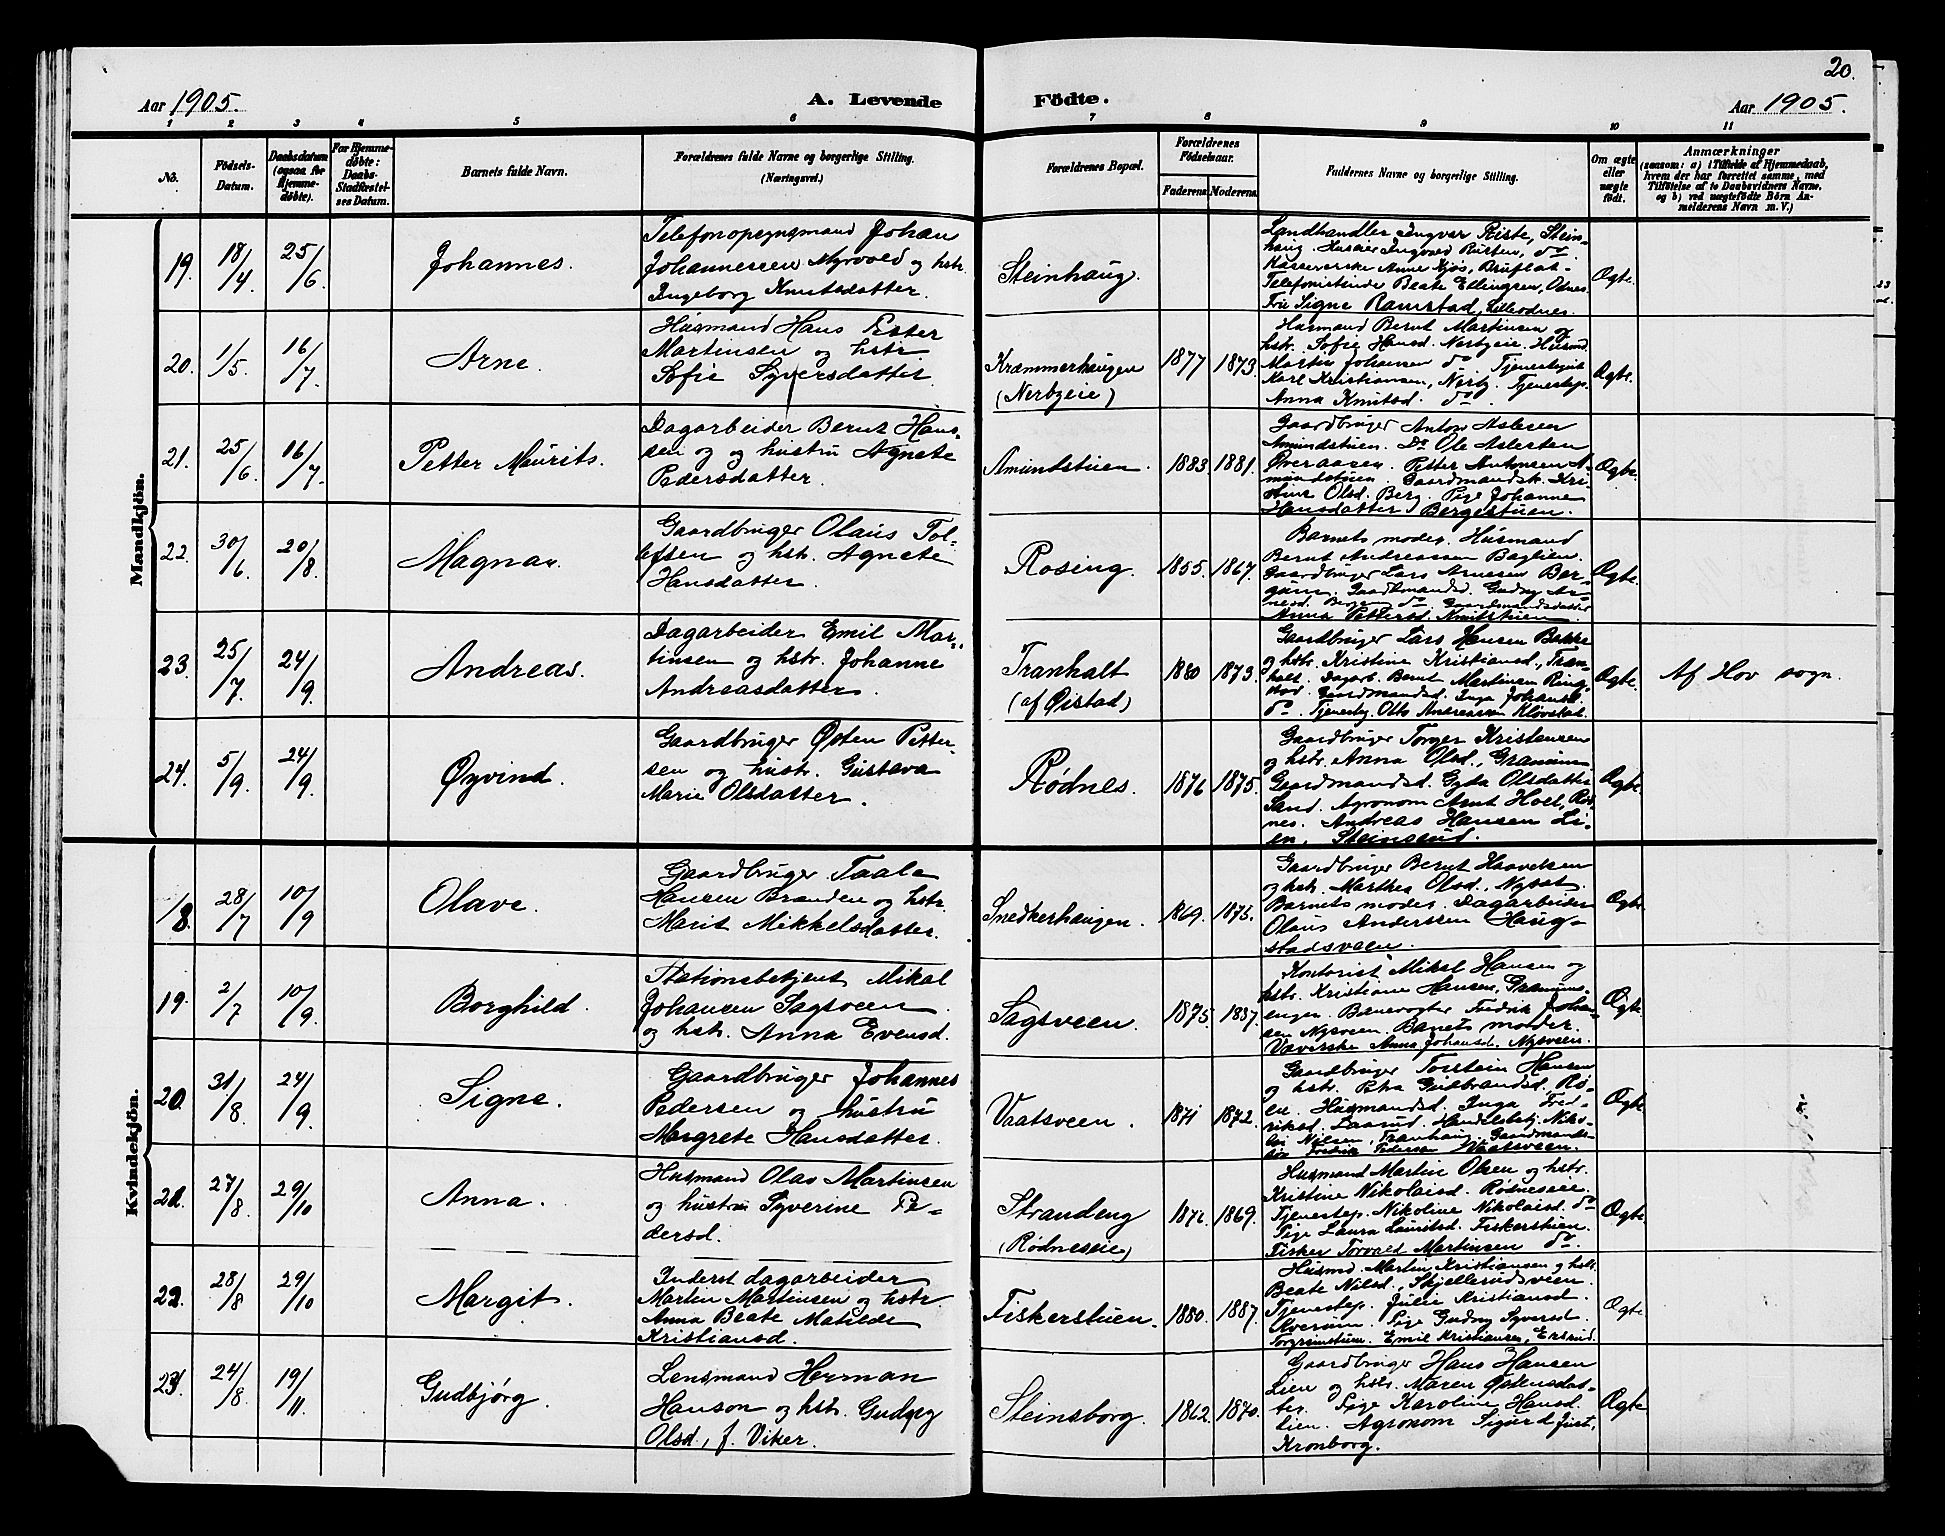 20.
Aar 1905.
A. Levende Födte.
Aar 1905.
1 2 3 4 5 6 7 8 9 10 11
No.
Födsels-
Datum.
Daabsdatum
(ogsaa for
Hjemme-
døbte).
For Hjemme-
døbte:
Daabs-
Stadfæstel-
ses Datum.
Barnets fulde Navn.
Forældrenes fulde Navne og borgerlige Stilling.
(Næringsvei.)
Forældrenes Bopæl.
Forældrenes
Födselsaar.
Faderens. Moderens.
Faddernes Navne og borgerlige Stilling.
Om ægte
eller
uægte
født.
Anmærkninger
(saasom: a) i Tilfælde af Hjemmedaab,
hvem der har forrettet samme, med
Tilföielse af to Daabsvidners Navne,
og b) ved uægtefödte Börn An-
melderens Navn m. V.)
Mandkjön.
19. 18/4 25/6 Johannes.
Telefonopsynsmand Johan
Johannessen Myrvold og hstr.
Ingeborg Knutsdatter.
Steinhaug.
Landhandler Ingvar Riste, Stein-
haug. Huseier Ingvald Rusten, do.
Kasserske Anne Kjøs, Bruflat.
Telefonistinde Beate Ellingsen, Odnes.
Frk Signe Ramstad, Lilleodnes.
Ægte.
20. 1/5. 16/7. Arne.
Husmand Hans Petter
Martinsen og hstr
Sofie Syversdatter.
Kræmmerhaugen
(Nerbyeie)
1877 1873.
Husmand Bernt Martinsen og
hstr. Sofie Hansd. Nerbyeie. Husmd.
Martin Johansen do. Tjenestegut
Karl Kristiansen, Nerby. Tjenestep.
Anna Knutsd. do.
Ægte.
21. 25/6. 16/7. Petter Maurits.
Dagarbeider Bernt Han-
sen og og hustru Agnete
Pedersdatter.
Amundstuen.
1883. 1881.
Gaardbruger Anton Aslesen
Amundstuen. Do Ole Aslesen
Øveraasen. Petter Antonsen A-
mundstuen. Gaardmandsk. Kri-
stine Olsd. Berg. Pige Johanne
Hansdatter Bergestuen.
Ægte.
22. 30/6. 20/8. Magnar.
Gaardbruger Olaus Tol-
lefsen og hstr. Agnete
Hansdatter.
Rosing.
1855. 1867.
Barnets moder. Husmand
Bernt Andreassen Baglien.
Gaardbruger Lars Arnesen Ber-
gum. Gaardmandsd. Gudny Ar-
nesd. Bergum do. Gaardmandsdatter
Anna Pettersd. Knutstuen.
Ægte.
23. 25/7. 24/9. Andreas.
Dagarbeider Emil Mar-
tinsen og hstr. Johanne
Andreasdatter.
Tranhalt
(af Øistad)
1880 1873.
Gaardbruger Lars Hansen Bakke
og hstr. Kristine Kristiansd., Tran-
halt. Dagarb. Bernt Martinsen Ring-
stad. Gaardmandsd. Inga Johansd.
do. Tjenestg. Otto Andreassen Klovstad.
Ægte.
Af Hov sogn.
24. 5/9. 24/9. Øyvind.
Gaardbruger Østen Petter-
sen og hustr. Gustava
Marie Olsdatter.
Rødnes.
1876 1875.
Gaardbruger Torger Kristensen
og hstr. Anna Olsd., Granum.
Gaardmandsd. Gyda Olsdatter
Sand. Agronom Arnt Hoel, Rød-
nes. Andreas Hansen Li-
en, Steinsrud.
Ægte.
Kvindekjön.
18. 28/7 10/9 Olave.
Gaardbruger Taale
Hansen Branden og hstr.
Marit Mikkelsdatter.
Snedkerhaugen.
1869. 1875.
Gaardbruger Bernt Haavelsen
og hstr. Marthea Olsd., Nysat.
Barnets moder. Dagarbeider
Olaus Anderssen Haug-
stadsveen.
Ægte
19. 2/7 10/9. Borghild.
Stationsbetjent Mikal
Johansen Sagsveen
og hstr. Anna Evensd.
Sagsveen.
1875. 1887.
Kontorist Mikal Hansen og
hstr. Kristiane Hansen, Granums-
engen. Banevogter Fredrik Johan-
sen Nysveen. Barnets moder.
Væverske Anna Johansd. Nysveen.
Ægte.
20. 31/8 24/9. Signe.
Gaardbruger Johannes
Pedersen og hustru
Margrete Hansdatter.
Vaatsveen.
1871 1872.
Gaardbruger Torstein Hansen
og hstr. Petra Gudbrandsd. Rø-
en. Husmandsd. Inga Fred-
riksd. Laasud. Handelsbtj. Niko-
lai Nilsen, Tranhaug. Gaardmands-
søn Fredrik Pedersen Vaatsveen.
Ægte.
21. 27/8. 29/10 Anna.
Husmand Olav Martinsen
og hustru Syverine Pe-
dersd.
Strandeng
(Rødneseie)
1869.
Husmand Martin Olsen og hstr.
Kristine Nikolaisd. Rødneseie.
Tjenestep. Nikoline Nikolaisd. do
Pige Laura Lauritsd. Fiskerstuen.
Fisker Torvald Martinsen do.
Ægte.
22. 28/8 29/10 Margit.
Inderst dagarbeider
Martin Martinsen og hstr.
Anna Beate Matilde
Kristiansd.
Fiskerstuen.
1880. 1887.
Husmd. Martin Kristiansen og hstr.
Beate Nilsd., Skjellerudsveen.
Tjenestep. Julie Kristiansd.
Alverum. Pige Gudny Syversd.
Torgrimstuen. Emil Kristiansen, Ersrud.
Ægte
23. 24/8 19/11. Gudbjørg.
Lensmand Herman
Hanson og hstr. Gudny
Olsd., f. Viker.
Steinsborg.
1862. 1870.
Gaardbruger Hans Hansen
Lien og hstr. Maren Østensdat-
ter. Pige Karoline Hansd.
Lien. Agronom Sigurd Just,
Kronborg.
Ægte